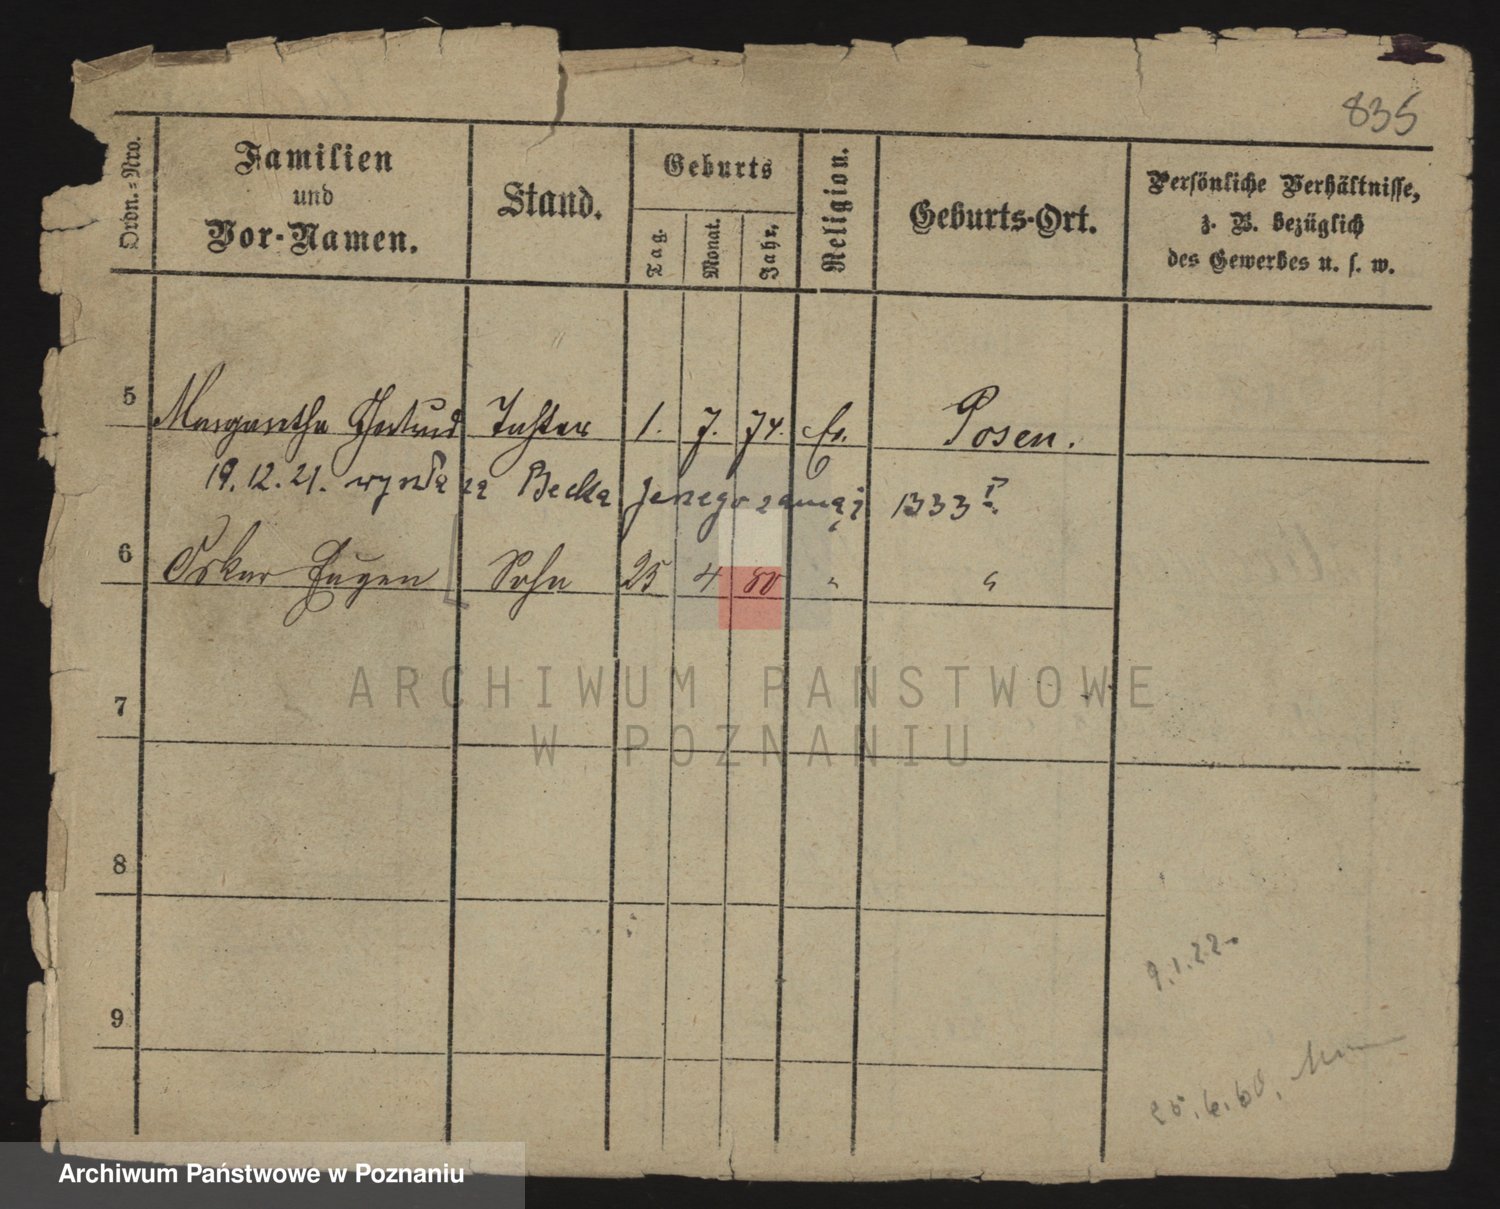 835
Ordn.=Nro.
Familien
und
Vor-Namen.
Stand.
Geburts
Tag.
Monat.
Jahr.
Religion.
Geburts-Ort.
Persönliche Verhältnisse,
z. B. bezüglich
des Gewerbes u. s. w.
5 Margarethe Gertrud Tochter 1. 7. 74. Ev. Posen.
19.12.21. za Becka Jenego zamąż 1333
6 Oskar Eugen Sohn 25 4 80 " "
ARCHIWUM PAŃSTWOWE
W POZNANIU
7
8
9
9.1.22.
25.6.60.
Archiwum Państwowe w Poznaniu